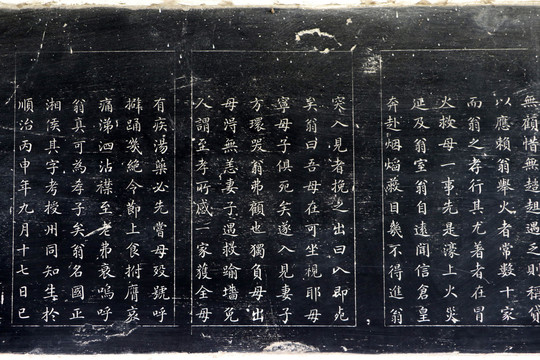 無顧惜無趦趄遇之則稱貸
以應賴翁舉火者常數十家
而翁之孝行其尤著者在冒
火救母一事先是濠上火災
延及翁室翁自遠聞信倉皇
奔赴烟焰蔽目幾不得進翁
突入見者挽之出曰入即死
矣翁曰吾母在可坐視耶毋
寧母子俱死矣遂入見妻子
方環哭翁弗顧也獨負母出
母得無恙妻子遇救踰墻免
人謂至孝所感一家獲全母
有疾湯藥必先嘗母歿號呼
擗踊幾絕令節上食拊膺哀
痛涕泗沾襟至老弗衰嗚呼
翁真可為孝子矣翁名國正
湘侯其字考授州同知生於
順治丙申年九月十七日巳